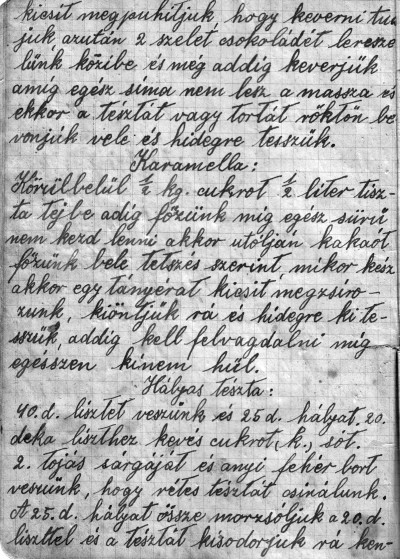 kicsit megpuhítjuk, hogy keverni tud
juk, azután 2 szelet csokoládét leresze
lünk közibe és meg addig keverjük
amíg egész síma nem lesz a massza és
ekkor a tésztát vagy tortát röktön be
vonjuk vele és hidegre tesszük.
Karamella:
Körülbelül ½ kg. cukrot ½ liter tisz-
ta tejbe adig főzünk míg egész sürü
nem kezd lenni akkor utólján kakaót
főzünk bele tetszés szerint, mikor kész
akkor egy tányérat kicsit megzsíro-
zunk, kiöntjük ra és hidegre kite-
szük, addig kell felvagdalni míg
egésszen kinem hül.
Hályas tészta:
40.d. lisztet veszünk és 25 d. hályat. 20.
deka liszthez keves cukrot, k., sót.
2. tojás sárgáját és anyi fehér bort
veszünk, hogy rétes tésztát csinálunk.
A 25.d. hályat össze morzsóljuk a 20.d.
liszttel és a tésztát kisodorjuk rá ken-